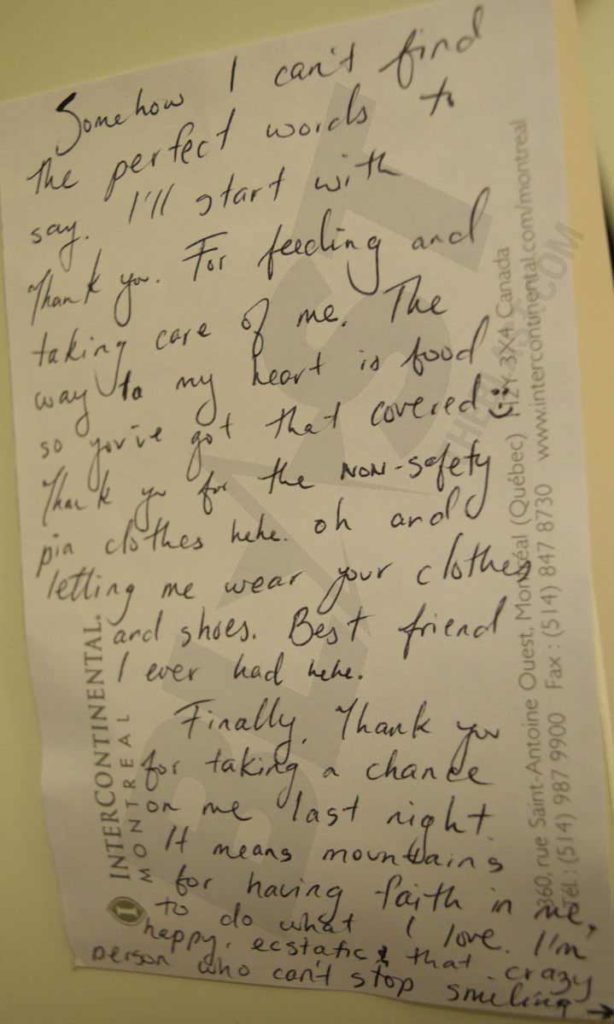 Somehow I can't find
the perfect words to
say. I'll start with
Thank you. For feeding and
taking care of me. The
way to my heart is food
so you've got that covered
Thank you for the NON-safety
pin clothes hehe. oh and
letting me wear your clothes
and shoes. Best friend
I ever had hehe.
Finally, Thank you
for taking a chance
on me last night.
It means mountains
for having faith in me,
to do what I love. I'm
happy, ecstatic & that crazy
person who can't stop smiling →
INTERCONTINENTAL.
MONTREAL
360, rue Saint-Antoine Ouest, Montréal (Québec) H2Y 3X4 Canada
Tél.: (514) 987 9900 Fax : (514) 847 8730 www.intercontinental.com/montreal